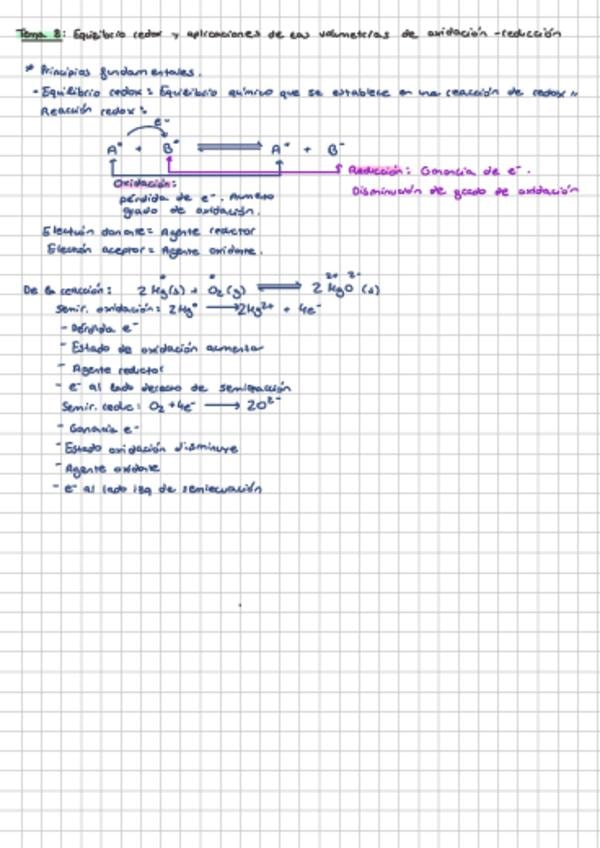 Tema 8: Equilibrio redox y aplicaciones de las volumetrías de oxidación-reducción
* Principios fundamentales.
- Equilibrio redox: Equilibrio químico que se establece en una reacción de redox
Reacción redox:
e⁻
A° + B° ⇌ A⁺ + B⁻
Reducción: Ganancia de e⁻.
Disminución de grado de oxidación
Oxidación:
pérdida de e⁻. Aumento
grado de oxidación.
Electrón donante = Agente reductor
Electrón aceptor = Agente oxidante.
De la reacción: 2 Hg(s) + O₂(g) ⇌ 2 HgO (s)
Semir. oxidación: 2Hg° → 2Hg²⁺ + 4e⁻
- Pérdida e⁻
- Estado de oxidación aumenta
- Agente reductor
- e⁻ al lado derecho de semireacción
Semir. reduc: O₂ + 4e⁻ → 2O²⁻
- Ganancia e⁻
- Estado oxidación disminuye
- Agente oxidante
- e⁻ al lado izq de semiecuación